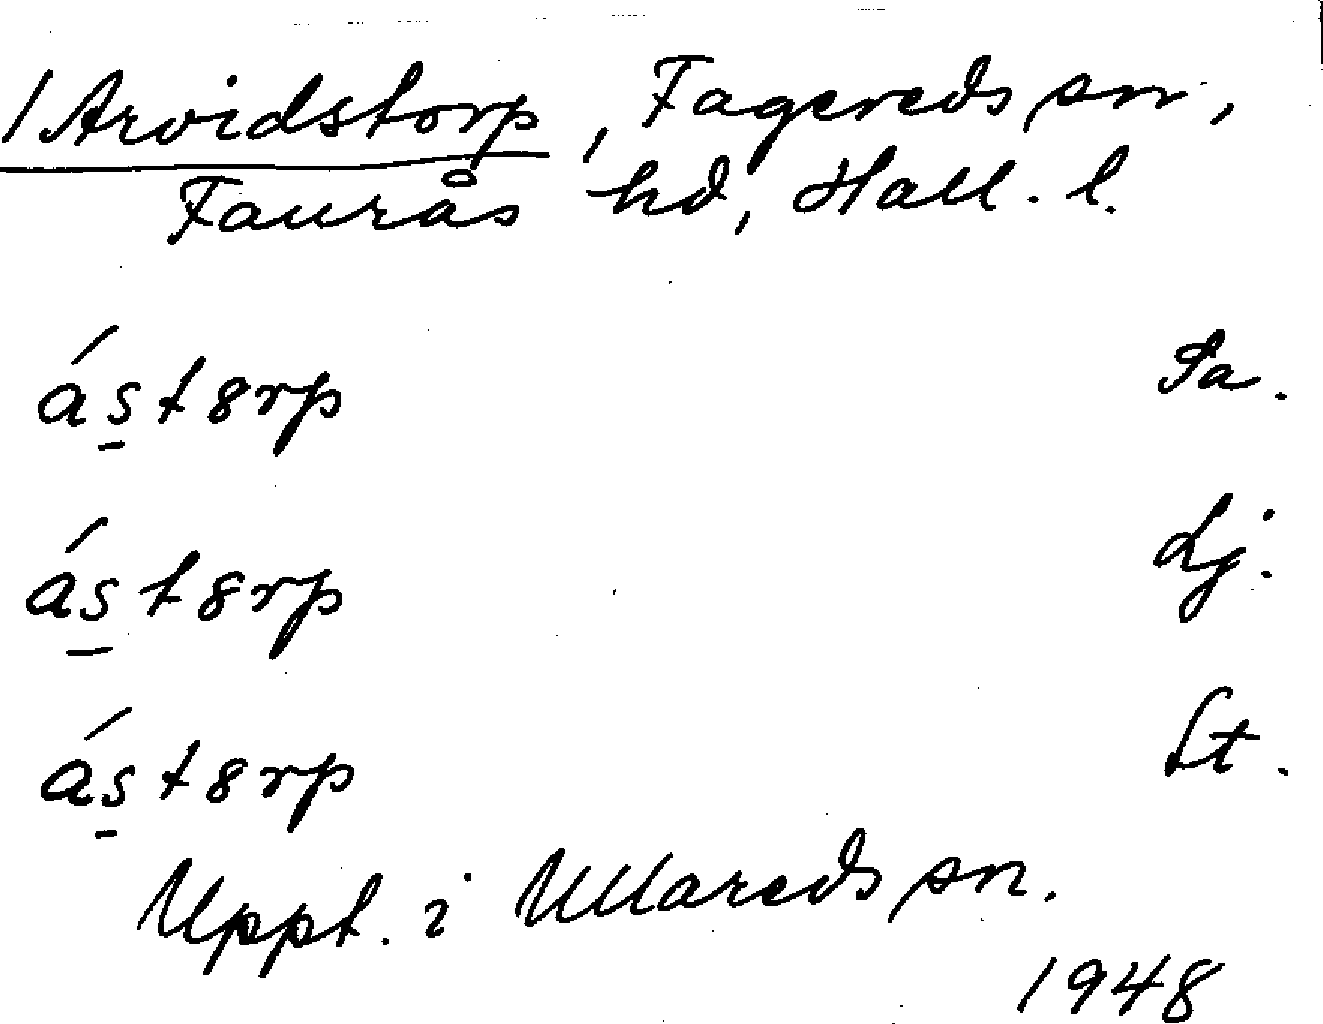 /Arvidstorp, Fagereds sn,
Faurås hd, Hall. l.
ást8rp Sa.
ást8rp Lj.
ást8rp St.
Uppt. i Ullareds sn.
1948